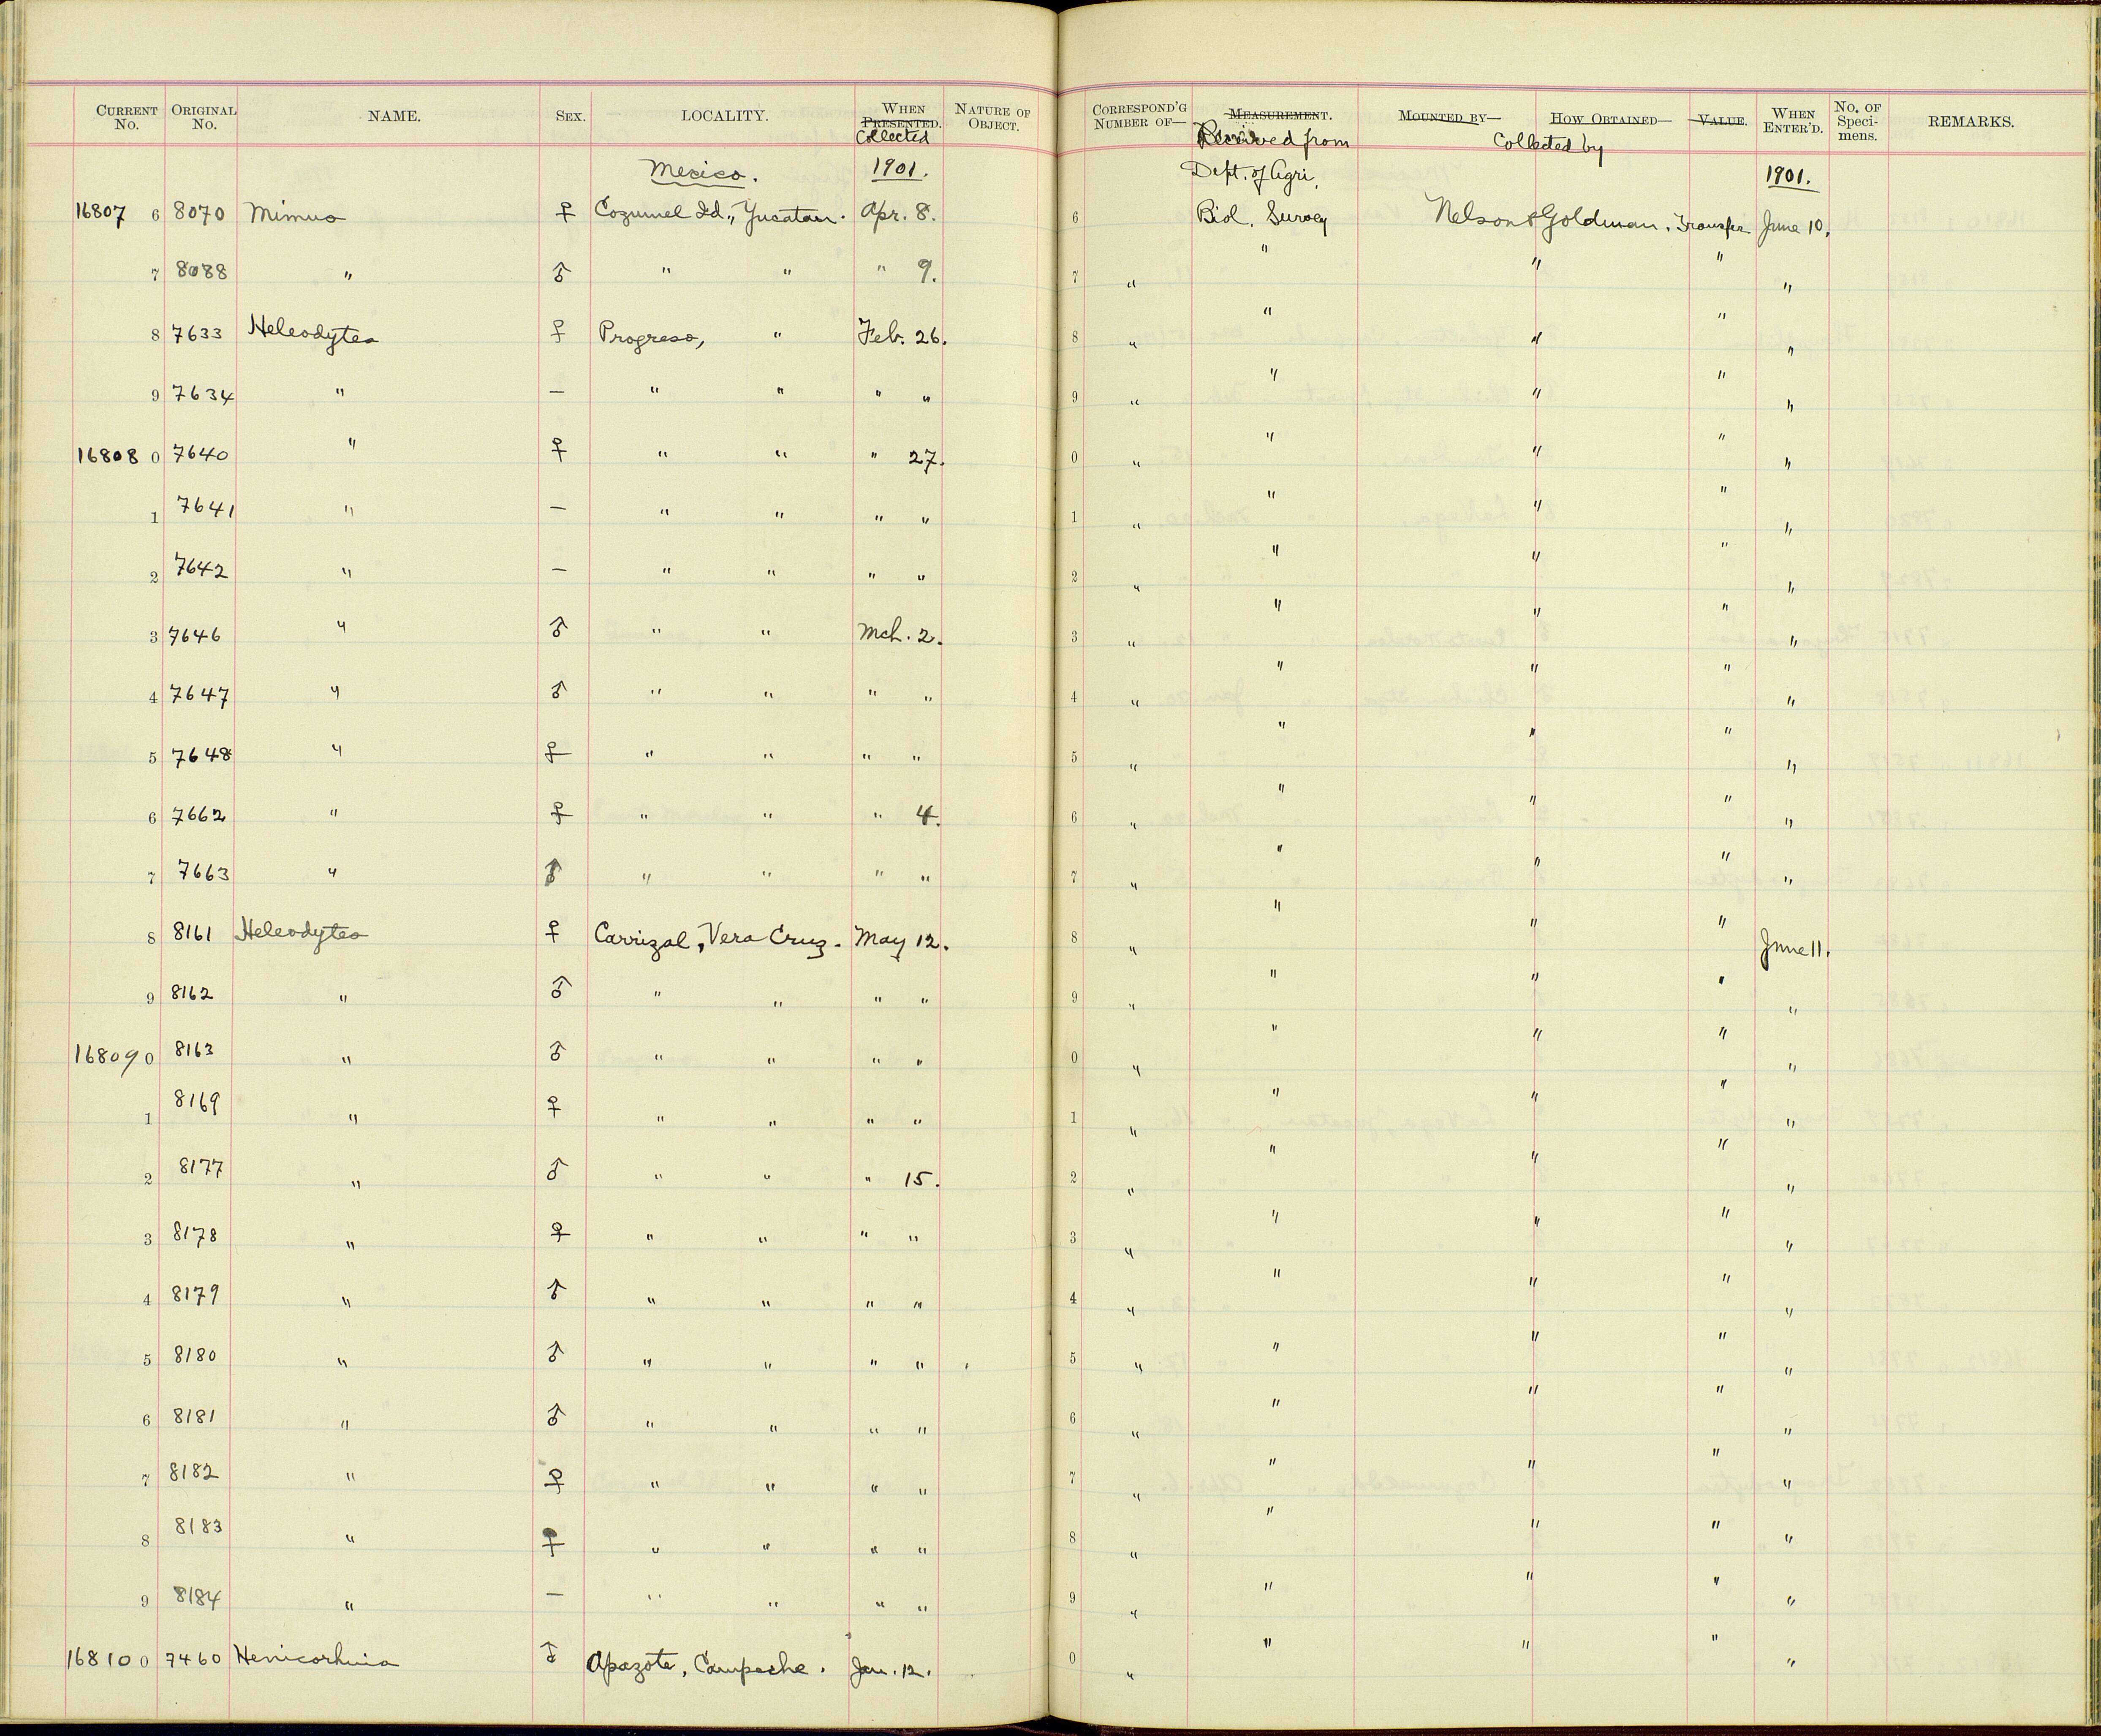 CURRENT No. ORIGINAL No. NAME. SEX. LOCALITY. WHEN PRESENTED. Collected NATURE OF OBJECT. CORRESPOND'G NUMBER OF— MEASUREMENT. Received from MOUNTED BY— HOW OBTAINED— Collected by VALUE. WHEN ENTER'D. No. OF Specimens. REMARKS.
Mexico. 1901. Dept. of Agri. 1901.
16807 6 8070 Mimus ♀ Cozumel Id., Yucatan. Apr. 8. 6 Biol. Survey Nelson & Goldman. Transfer June 10.
7 8088 " ♂ " " " 9. 7 " " " " "
8 7633 Heleodytes ♀ Progreso, " Feb. 26. 8 " " " " "
9 7634 " — " " " " 9 " " " " "
16808 0 7640 " ♀ " " " 27. 0 " " " " "
1 7641 " — " " " " 1 " " " " "
2 7642 " — " " " " 2 " " " " "
3 7646 " ♂ " " Mch. 2. 3 " " " " "
4 7647 " ♂ " " " " 4 " " " " "
5 7648 " ♀ " " " " 5 " " " " "
6 7662 " ♀ " " " 4. 6 " " " " "
7 7663 " ♂ " " " " 7 " " " " "
8 8161 Heleodytes ♀ Carrizal, Vera Cruz. May 12. 8 " " " " June 11.
9 8162 " ♂ " " " " 9 " " " " "
16809 0 8163 " ♂ " " " " 0 " " " " "
1 8169 " ♀ " " " " 1 " " " " "
2 8177 " ♂ " " " 15. 2 " " " " "
3 8178 " ♀ " " " " 3 " " " " "
4 8179 " ♂ " " " " 4 " " " " "
5 8180 " ♂ " " " " 5 " " " " "
6 8181 " ♂ " " " " 6 " " " " "
7 8182 " ♀ " " " " 7 " " " " "
8 8183 " ♀ " " " " 8 " " " " "
9 8184 " — " " " " 9 " " " " "
16810 0 7460 Henicorhina ♂ Apazote, Campeche. Jan. 12. 0 " " " " "